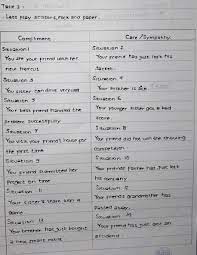 Task 3 :
Lets play scissors, rock and paper.
Compliment
Care / Sympathy
Situation 1
You see your friend with her new haircut
Situation 2
Your friend has just lost his
Situation 3
You sister can drive very well
Situation 4
Your brother is sick
Situation 5
Your best friend handled the problem successfully
Situation 6
Your younger sister got a bad score.
Situation 7
You visit your friend's house for the first time
Situation 8
Your friend did not win the drawing competition
Situation 9
Your friend submitted her Project on time
Situation 10
Your friend's father has just lost his company
Situation 11
Your sister's team won a game
Situation 12
Your friend's grandmother has passed away.
Situation 13
Your brother has just bought a new smart
Situation 14
Your friend has just got an accident